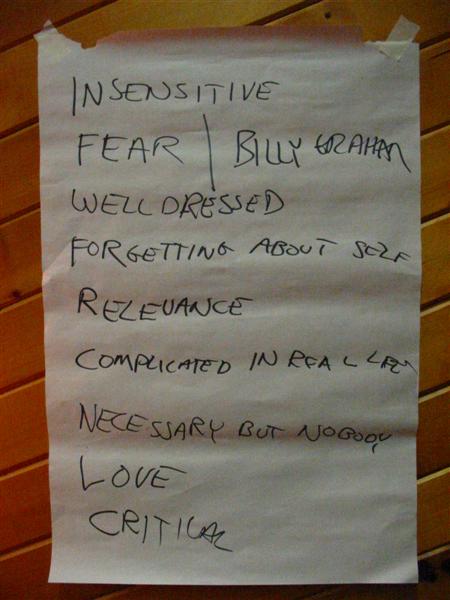 INSENSITIVE
FEAR | BILLY GRAHAM
WELL DRESSED
FORGETTING ABOUT SELF
RELEVANCE
COMPLICATED IN REAL LIFE
NECESSARY BUT NOBODY
LOVE
CRITICAL